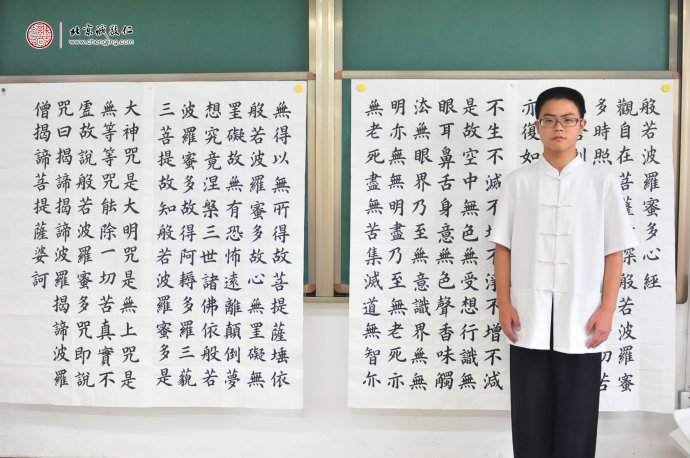 北京成敬仁
www.chengjing.com
般若波羅蜜多心經
觀自在菩薩深般若波羅蜜
多時照切苦
利
亦復如
不生不滅不垢不淨不增不減
是故空中無色無受想行識無
眼耳鼻舌身意無色聲香味觸
法無眼界乃至無意識界無無
明亦無無明盡乃至無老死亦
無老死盡無苦集滅道無智亦
無得以無所得故菩提薩埵依
般若波羅蜜多故心無罣礙無
罣礙故無有恐怖遠離顛倒夢
想究竟涅槃三世諸佛依般若
波羅蜜多故得阿耨多羅三藐
三菩提故知般若波羅蜜多是
大神咒是大明咒是無上咒是
無等等咒能除一切苦真實不
虛故說般若波羅蜜多咒即說
咒曰揭諦揭諦波羅揭諦波羅
僧揭諦菩提薩婆訶